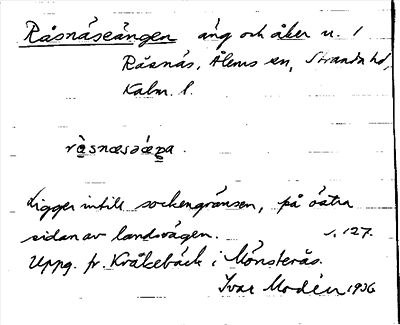 Råsnäseängen äng och åker n. 1
Råsnäs, Ålems sn, Stranda hd,
Kalm. l.
Ligger intill sockengränsen, på östra
sidan av landsvägen. s. 127.
Uppg. fr. Kråkebäck i Mönsterås.
Ivar Modéer 1936